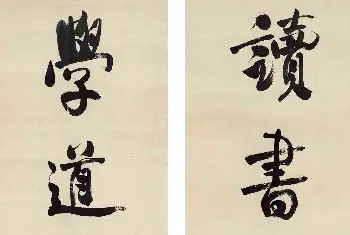 讀書
學道